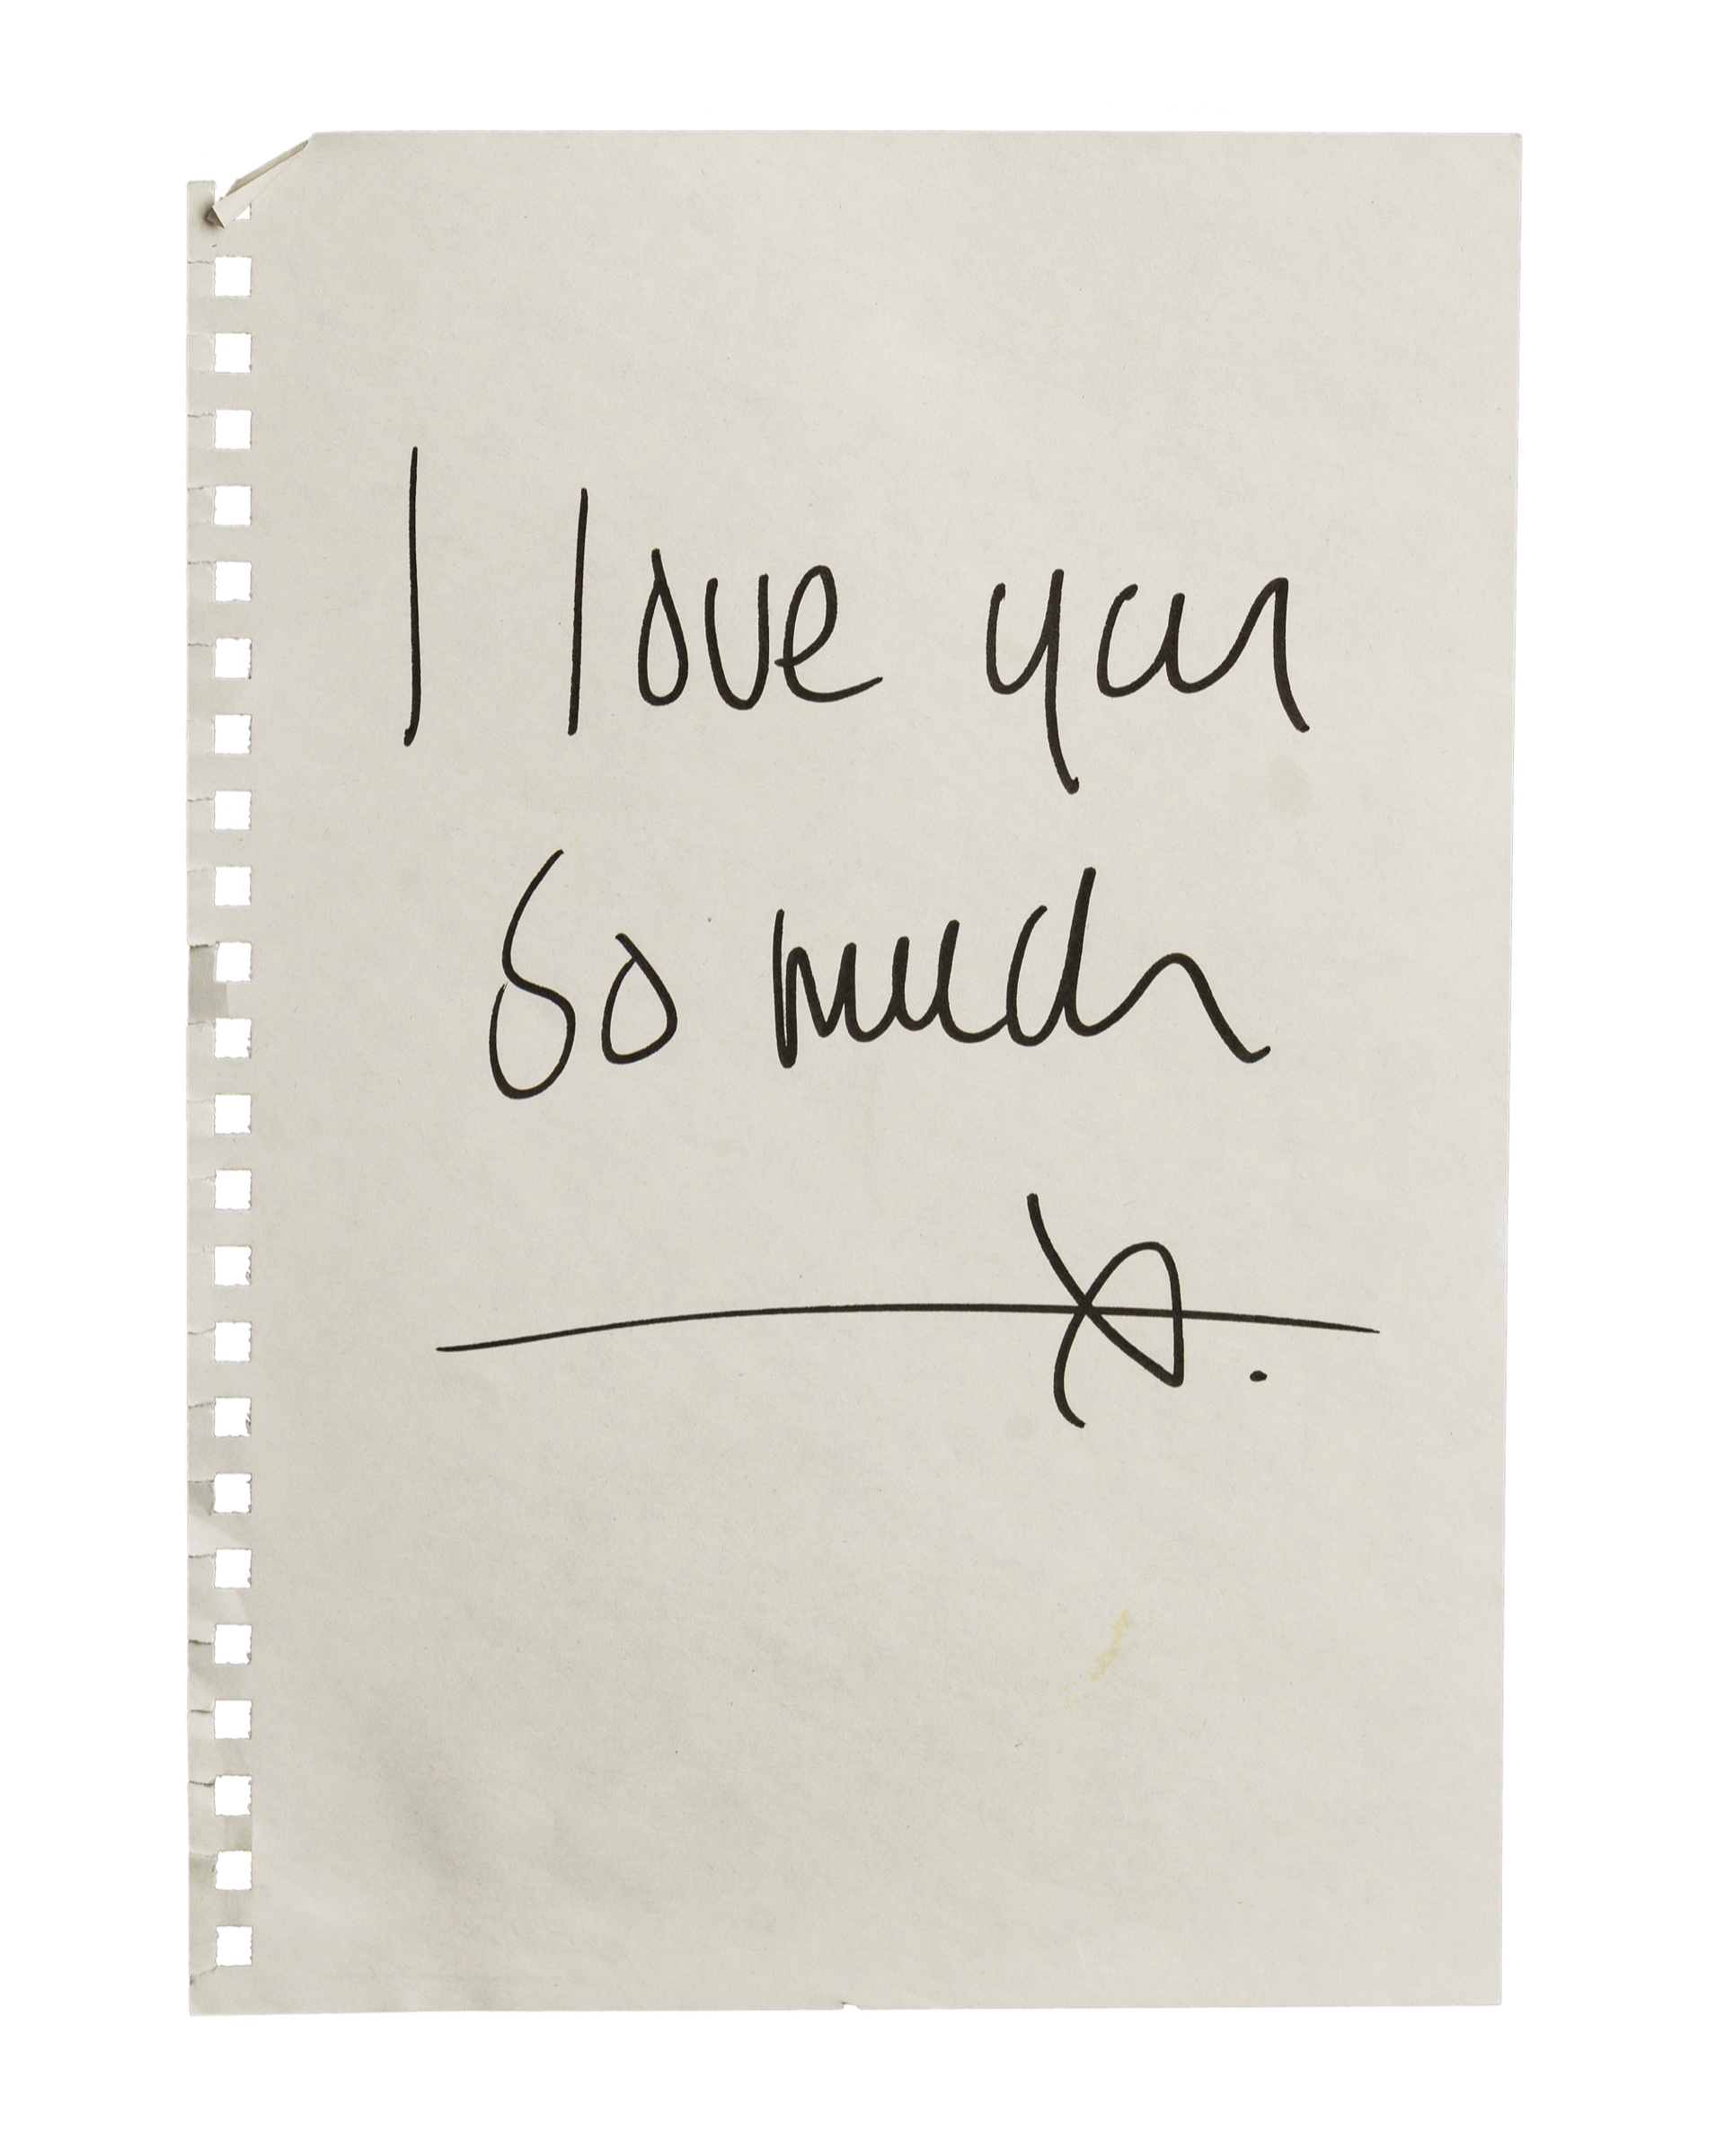 I love you
so much